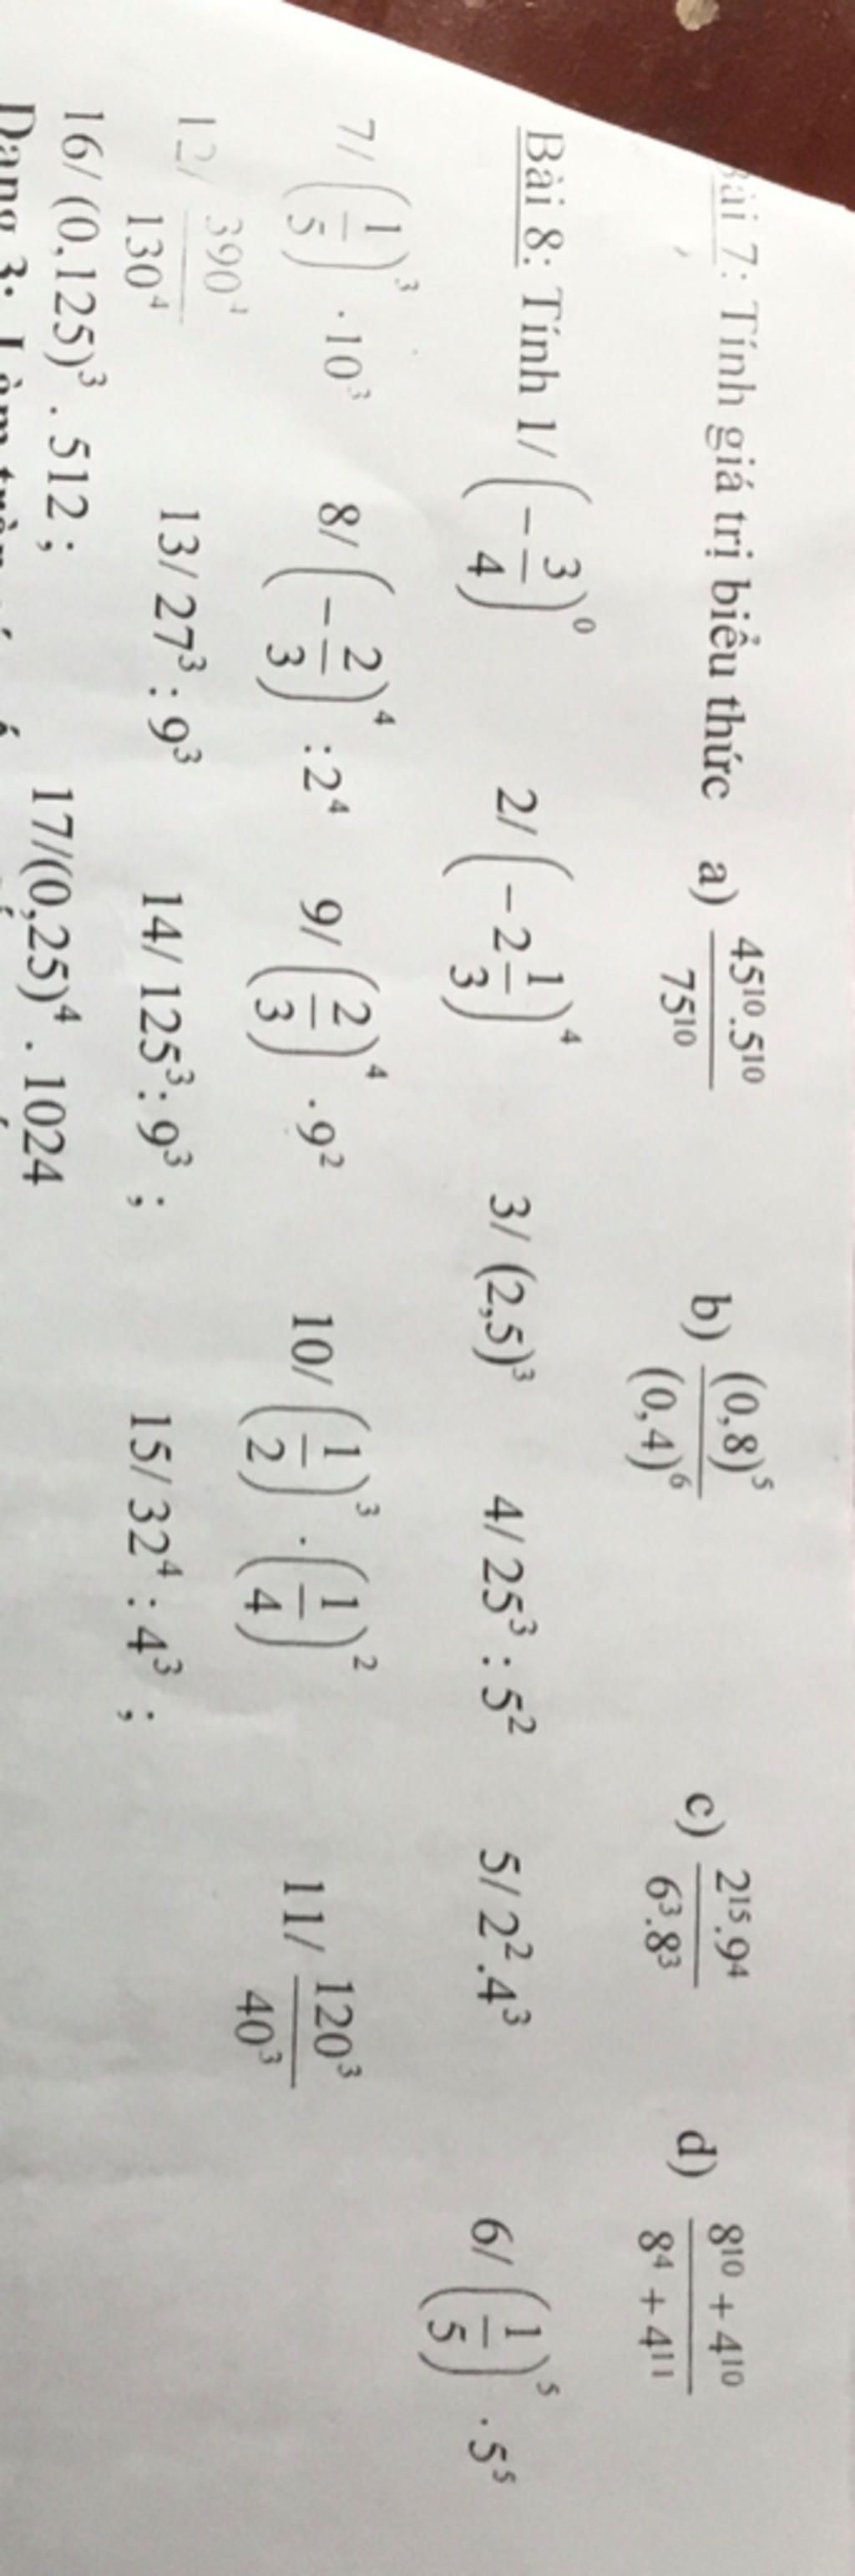 Bài 7: Tính giá trị biểu thức a) 45¹⁰.5¹⁰/75¹⁰ b) (0,8)⁵/(0,4)⁶ c) 2¹⁵.9⁴/6³.8³ d) 8¹⁰ + 4¹⁰/8⁴ + 4¹¹
Bài 8: Tính 1/ (−3/4)⁰ 2/ (−2 1/3)⁴ 3/ (2,5)³ 4/ 25³ : 5² 5/ 2².4³ 6/ (1/5)⁵ · 5⁵
7/ (1/5)³ · 10³ 8/ (−2/3)⁴ : 2⁴ 9/ (2/3)⁴ · 9² 10/ (1/2)³ · (1/4)² 11/ 120³/40³
12/ 390⁴/130⁴ 13/ 27³ : 9³ 14/ 125³ : 9³ ; 15/ 32⁴ : 4³ ;
16/ (0,125)³ . 512 ; 17/(0,25)⁴ . 1024
Dạng 3: